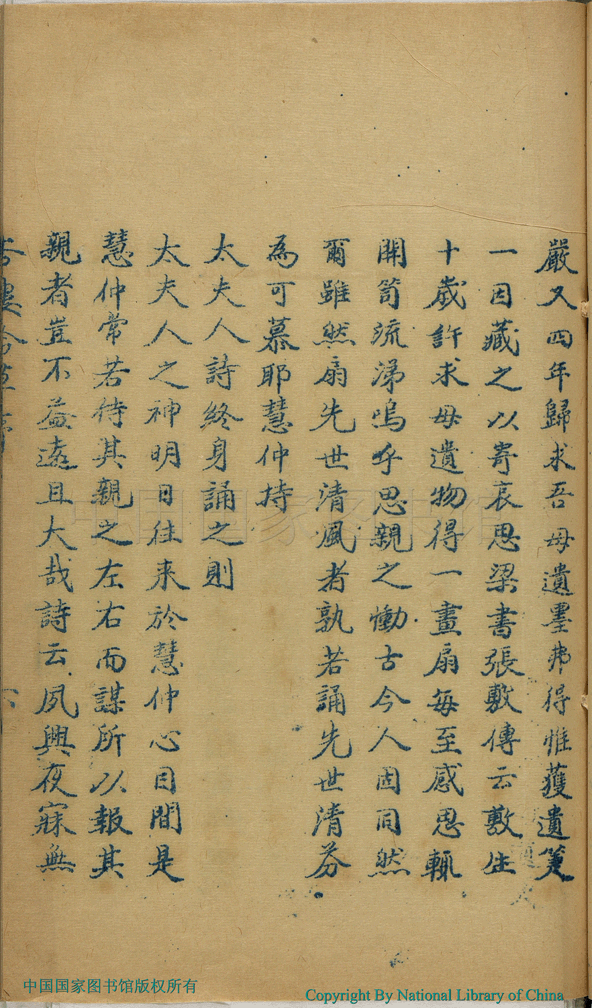 嚴又四年歸求吾母遺墨弗得惟獲遺箑
一因藏之以寄哀思梁書張敷傳云敷生
十歲許求母遺物得一畫扇每至感思輒
開笥流涕嗚乎思親之慟古今人固同然
爾雖然扇先世清風者孰若誦先世清芬
為可慕耶慧仲持
太夫人詩終身誦之則
太夫人之神明日往来於慧仲心目間是
慧仲常若侍其親之左右而謀所以報其
親者豈不益遠且大哉詩云夙興夜寐無
中国国家图书馆
中国国家图书馆版权所有
Copyright By National Library of China